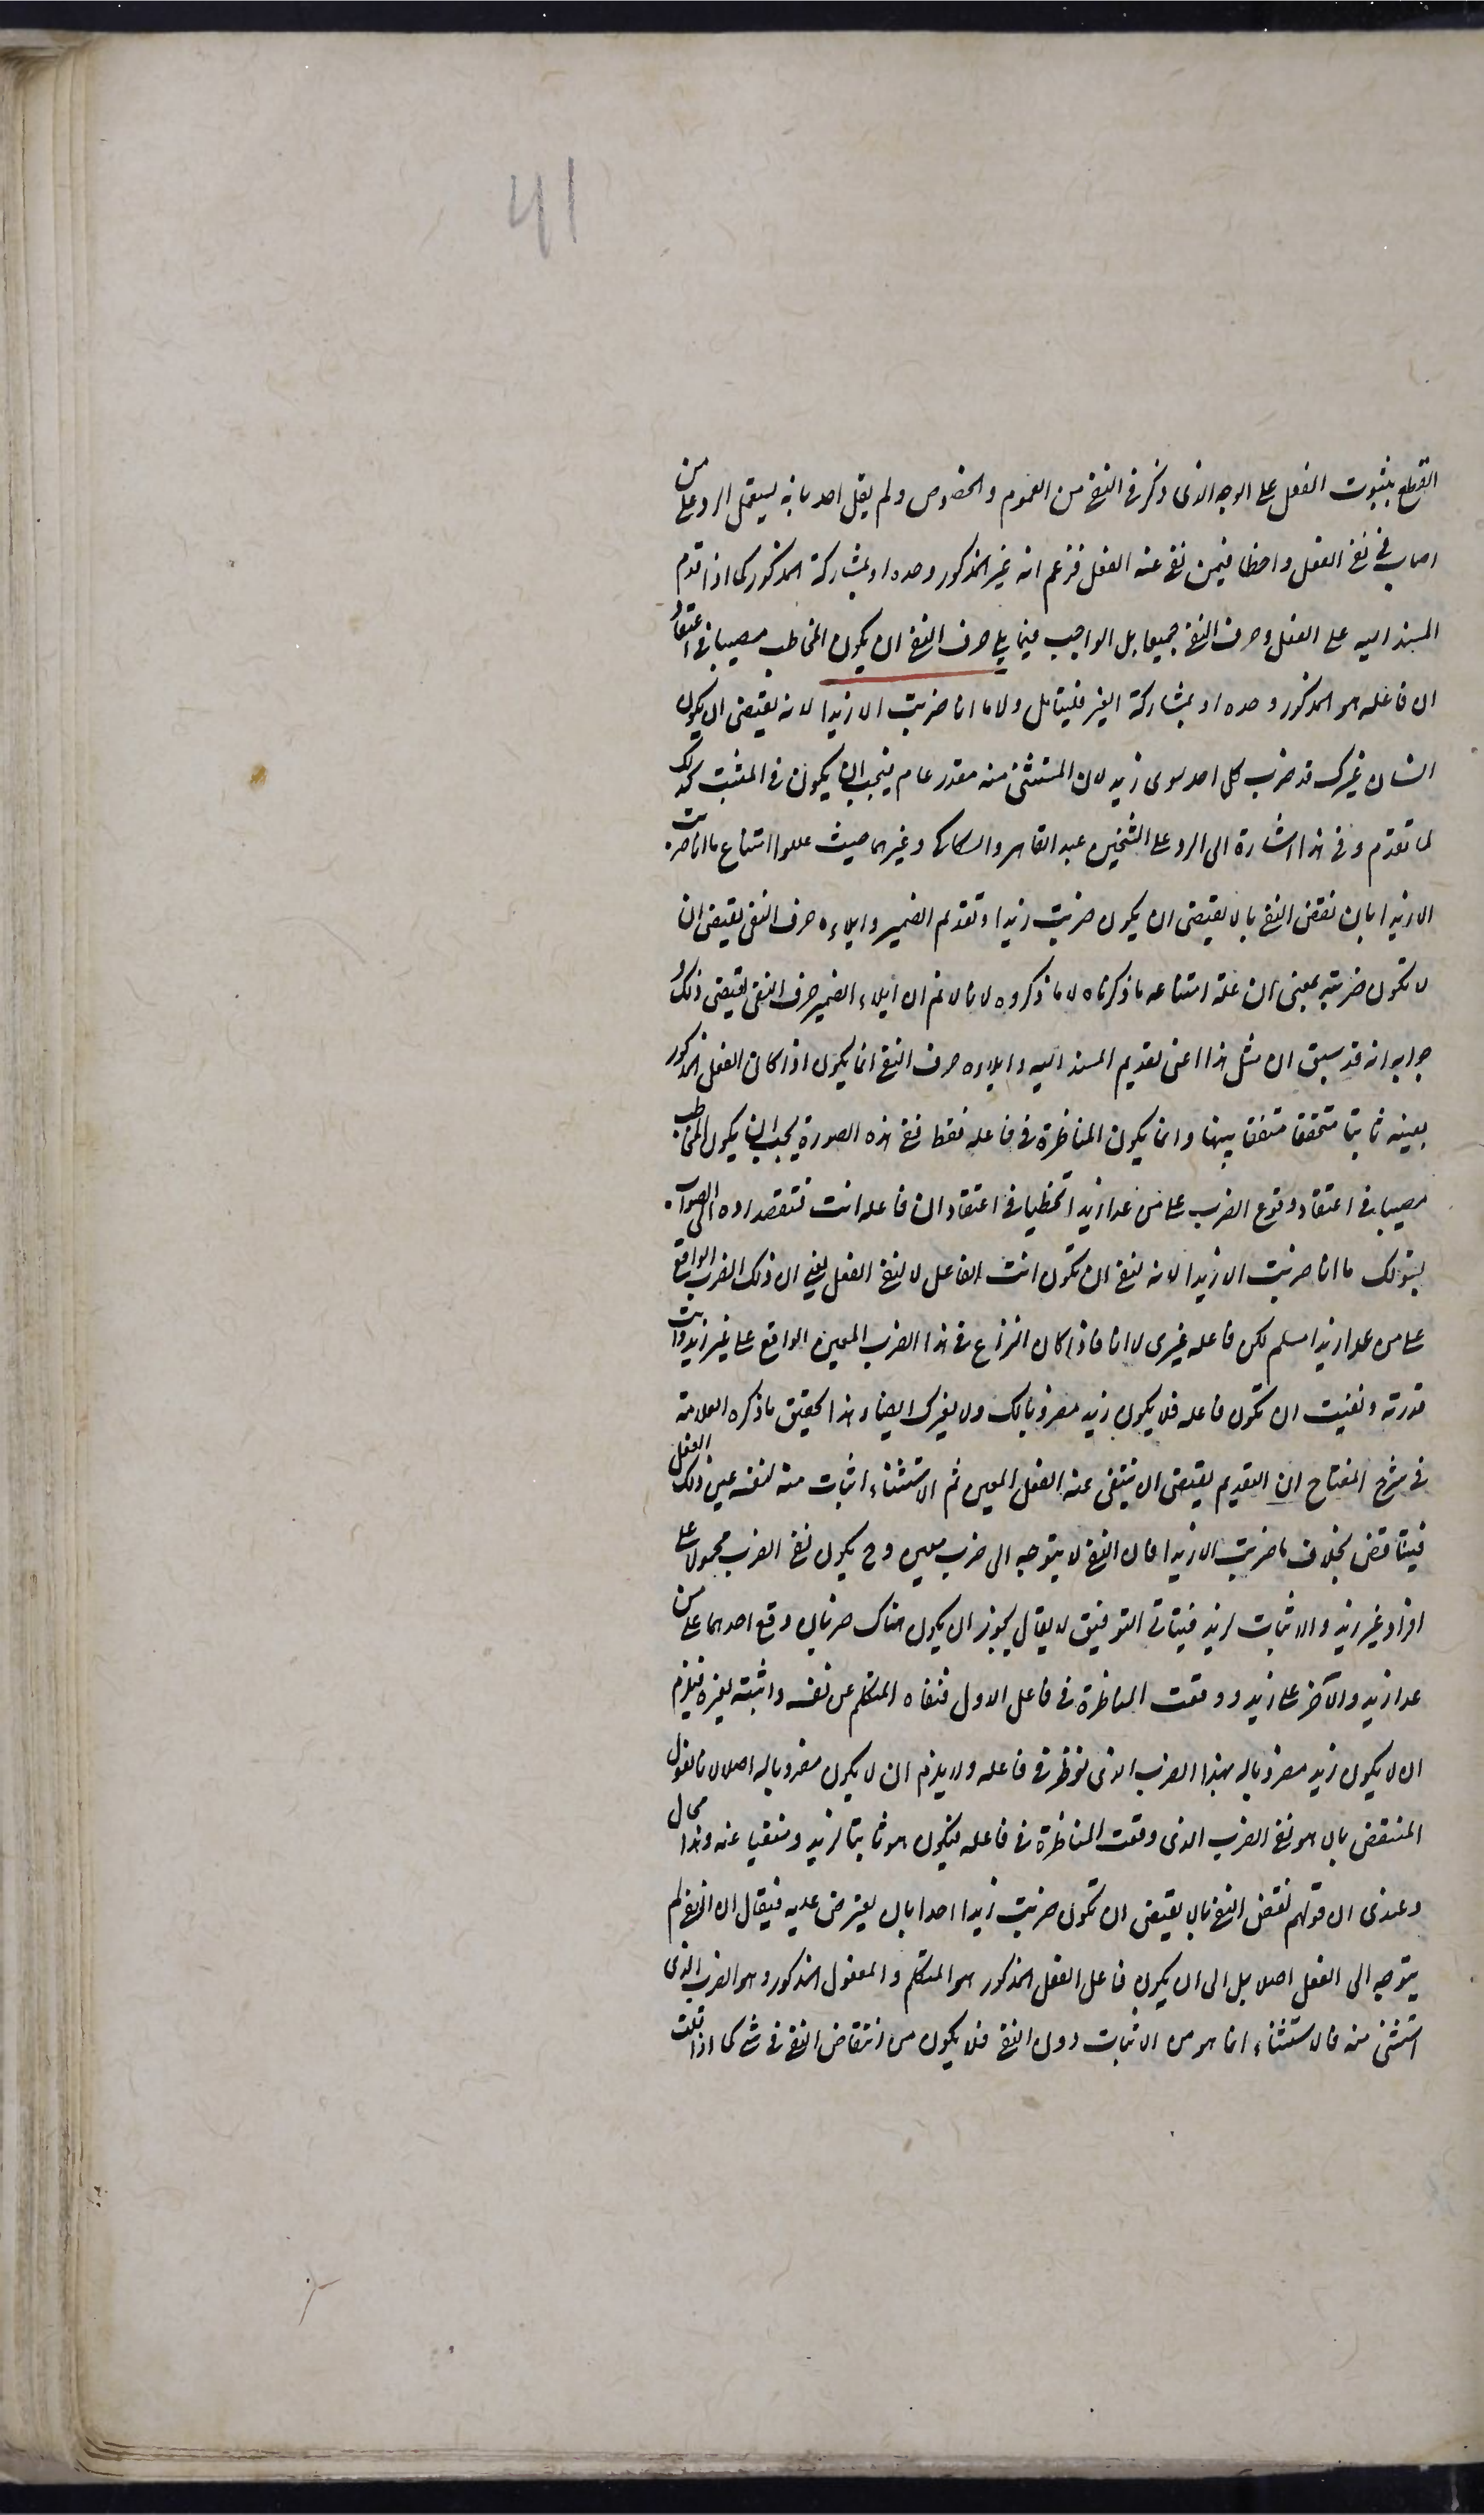 41
القطع بثبوت الفعل على الوجه الذى ذكر فى النفى من العموم والخصوص ولم يقل احد بانه يستعمل للرد على من
اصاب فى نفى الفعل واخطا فيمن نفى عنه الفعل فزعم انه غير المذكور وحده او بمشاركة المذكور كما اذا قدم
المسند اليه على الفعل وحرف النفى جميعا بل الواجب فيما يلى حرف النفى ان يكون المخاطب مصيبا فى اعتقاد
ان فاعله هو المذكور وحده او بمشاركة الغير فليتامل ولا ما انا ضربت الا زيدا لانه يقتضى ان يكون
انسان غيرك قد ضرب كل احد سوى زيد لان المستثنى منه مقدر عام فيجب ان يكون فى المثبت كذلك
لما تقدم وفى هذا اشارة الى الرد على الشيخين عبد القاهر والسكاكى وغيرهما حيث عللوا امتناع ما انا ضربت
الا زيدا بان نقض النفى بالا يقتضى ان يكون ضربت زيدا وتقديم الضمير وايلاءه حرف النفى يقتضى ان
لا تكون ضربته يعنى ان علة امتناعه ما ذكرناه لا ما ذكروه لانا لا نم ان ايلاء الضمير حرف النفى يقتضى ذلك و
جوابه انه قد سبق ان مثل هذا اعنى تقديم المسند اليه وايلاءه حرف النفى انما يكون اذا كان الفعل المذكور
بعينه ثابتا متحققا متفقا بينهما وانما يكون المناظرة فى فاعله فقط ففى هذه الصورة يجب ان يكون المخاطب
مصيبا فى اعتقاد وقوع الضرب على من عدا زيد اتخطيا فى اعتقاد ان فاعله انت فتقصد رده الى الصواب
بقولك ما انا ضربت الا زيدا لانه لنفى ان تكون انت الفاعل لا لنفى الفعل يعنى ان ذلك الضرب الواقع
على من عدا زيدا مسلم لكن فاعله غيرى لا انا فاذا كان النزاع فى هذا الضرب المعين الواقع على غير زيد وانت
قررته ونفيت ان تكون فاعله فلا يكون زيد مضروبا لك ولا لغيرك ايضا وهذا تحقيق ما ذكره العلامة
فى شرح المفتاح ان التقديم يقتضى ان ينتفى عنه الفعل المعين ثم الاستثناء اثبات منه لنفسه عين ذلك الفعل
فيتناقض بخلاف ما ضربت الا زيدا فان النفى لا يتوجه الى ضرب معين وح يكون نفى الضرب محمولا على
افراد غير زيد والاثبات لزيد فيتاتى التوفيق لا يقال يجوز ان يكون هناك ضربان وقع احدهما على من
عدا زيد والآخر على زيد ووقعت المناظرة فى فاعل الاول فنفاه المتكلم عن نفسه واثبته لغيره فيلزم
ان لا يكون زيد مضروبا له بهذا الضرب الذى نوظر فى فاعله ولا يلزم ان لا يكون مضروبا له اصلا لانا نقول
المنتقض بالا هو نفى الضرب الذى وقعت المناظرة فى فاعله فيكون هو ثابتا لزيد ومنفيا عنه وهذا محال
وعندى ان قولهم نقض النفى بالا يقتضى ان تكون ضربت زيدا احد ابان يعترض عليه فيقال ان النفى لم
يتوجه الى الفعل اصلا بل الى ان يكون فاعل الفعل المذكور هو المتكلم والمفعول المذكور وهو الضرب الذى
استثنى منه فالاستثناء انما هو من الاثبات دون النفى فلا يكون من انتقاض النفى فى شى كما اذا قلت